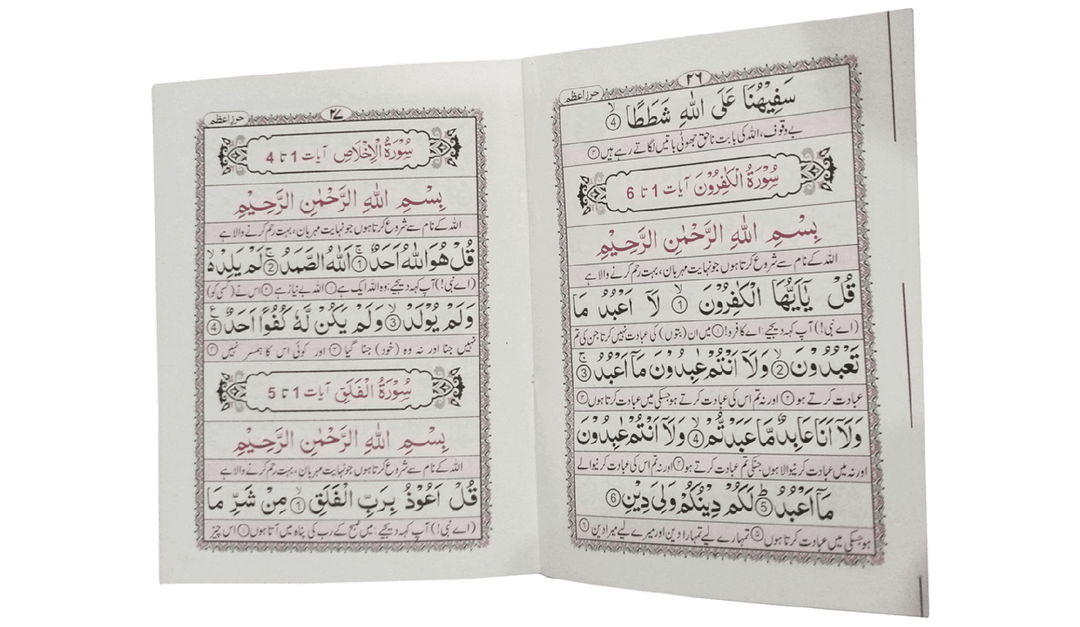 ۲۶
حرزِ اعظم
سَفِيْهُنَا عَلَى اللّٰهِ شَطَطًا ۙ4
بے وقوف، اللہ کی بابت ناحق جھوٹی باتیں لگاتے رہے ہیں ۴
سُوْرَةُ الْكٰفِرُوْنَ آیات 1 تا 6
بِسْمِ اللّٰهِ الرَّحْمٰنِ الرَّحِيْمِ
اللہ کے نام سے شروع کرتا ہوں جو نہایت مہربان، بہت رحم کرنے والا ہے
قُلْ يٰۤاَيُّهَا الْكٰفِرُوْنَ ۙ1 لَاۤ اَعْبُدُ مَا
(اے نبی!) آپ کہہ دیجیے: اے کافرو! ۱ میں ان (بتوں) کی عبادت نہیں کرتا جن کی تم
تَعْبُدُوْنَ ۙ2 وَلَاۤ اَنْتُمْ عٰبِدُوْنَ مَاۤ اَعْبُدُ ۚ3
عبادت کرتے ہو ۲ اور نہ تم اس کی عبادت کرتے ہو جسکی میں عبادت کرتا ہوں ۳
وَلَاۤ اَنَا عَابِدٌ مَّا عَبَدْتُّمْ ۙ4 وَلَاۤ اَنْتُمْ عٰبِدُوْنَ
اور نہ میں عبادت کرنیوالا ہوں جنکی تم عبادت کرتے ہو ۴ اور نہ تم اس کی عبادت کرنیوالے
مَاۤ اَعْبُدُ ؕ5 لَكُمْ دِيْنُكُمْ وَلِيَ دِيْنِ 6
ہو جسکی میں عبادت کرتا ہوں ۵ تمہارے لیے تمہارا دین اور میرے لیے میرا دین ۶
۲۷
حرزِ اعظم
سُوْرَةُ الْاِخْلَاصِ آیات 1 تا 4
بِسْمِ اللّٰهِ الرَّحْمٰنِ الرَّحِيْمِ
اللہ کے نام سے شروع کرتا ہوں جو نہایت مہربان، بہت رحم کرنے والا ہے
قُلْ هُوَ اللّٰهُ اَحَدٌ ۚ1 اَللّٰهُ الصَّمَدُ ۚ2 لَمْ يَلِدْ ۙ
(اے نبی!) آپ کہہ دیجیے: وہ اللہ ایک ہے ۱ اللہ بے نیاز ہے ۲ اس نے (کسی کو)
وَلَمْ يُوْلَدْ ۙ3 وَلَمْ يَكُنْ لَّهٗ كُفُوًا اَحَدٌ 4
نہیں جنا اور نہ وہ (خود) جنا گیا ۳ اور کوئی اس کا ہمسر نہیں ۴
سُوْرَةُ الْفَلَقِ آیات 1 تا 5
بِسْمِ اللّٰهِ الرَّحْمٰنِ الرَّحِيْمِ
اللہ کے نام سے شروع کرتا ہوں جو نہایت مہربان، بہت رحم کرنے والا ہے
قُلْ اَعُوْذُ بِرَبِّ الْفَلَقِ ۙ1 مِنْ شَرِّ مَا
(اے نبی!) آپ کہہ دیجیے: میں صبح کے رب کی پناہ میں آتا ہوں ۱ اس چیز